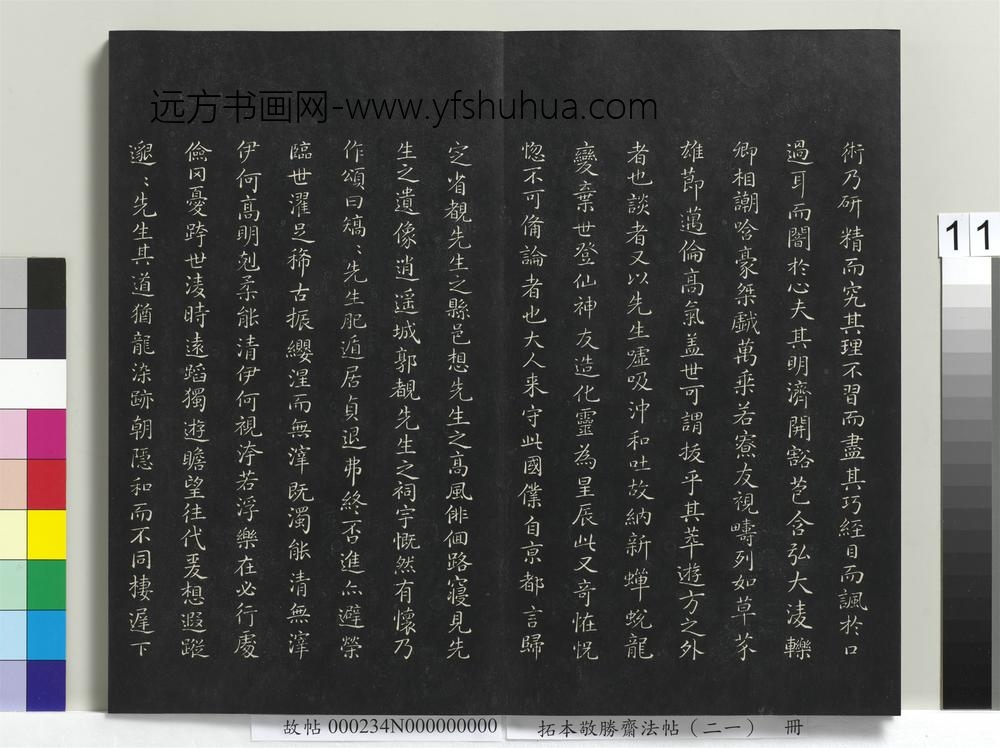 远方书画网-www.yfshuhua.com
術乃研精而究其理不習而盡其巧經目而諷於口
過耳而闇於心夫其明濟開豁苞含弘大淩轢
卿相謿哈豪桀戱萬乘若寮友視疇列如草芥
雄節邁倫高氣盖世可謂拔乎其萃遊方之外
者也談者又以先生噓吸沖和吐故納新蟬蛻龍
變棄世登仙神友造化靈為星辰此又竒恠怳
惚不可俻論者也大人来守此國僕自京都言歸
定省覩先生之縣邑想先生之高風俳佪路寢見先
生之遺像逍遥城郭覩先生之祠宇慨然有懷乃
作頌曰矯〻先生肥遁居貞退弗終否進亦避榮
臨世濯足稀古振纓涅而無滓既濁能清無滓
伊何高明剋柔能清伊何視洿若浮樂在必行處
儉罔憂跨世淩時遠蹈獨遊瞻望往代爰想遐蹤
邈〻先生其道猶龍染跡朝隱和而不同棲遲下
11
故帖 000234N000000000
拓本敬勝齋法帖（二一） 冊